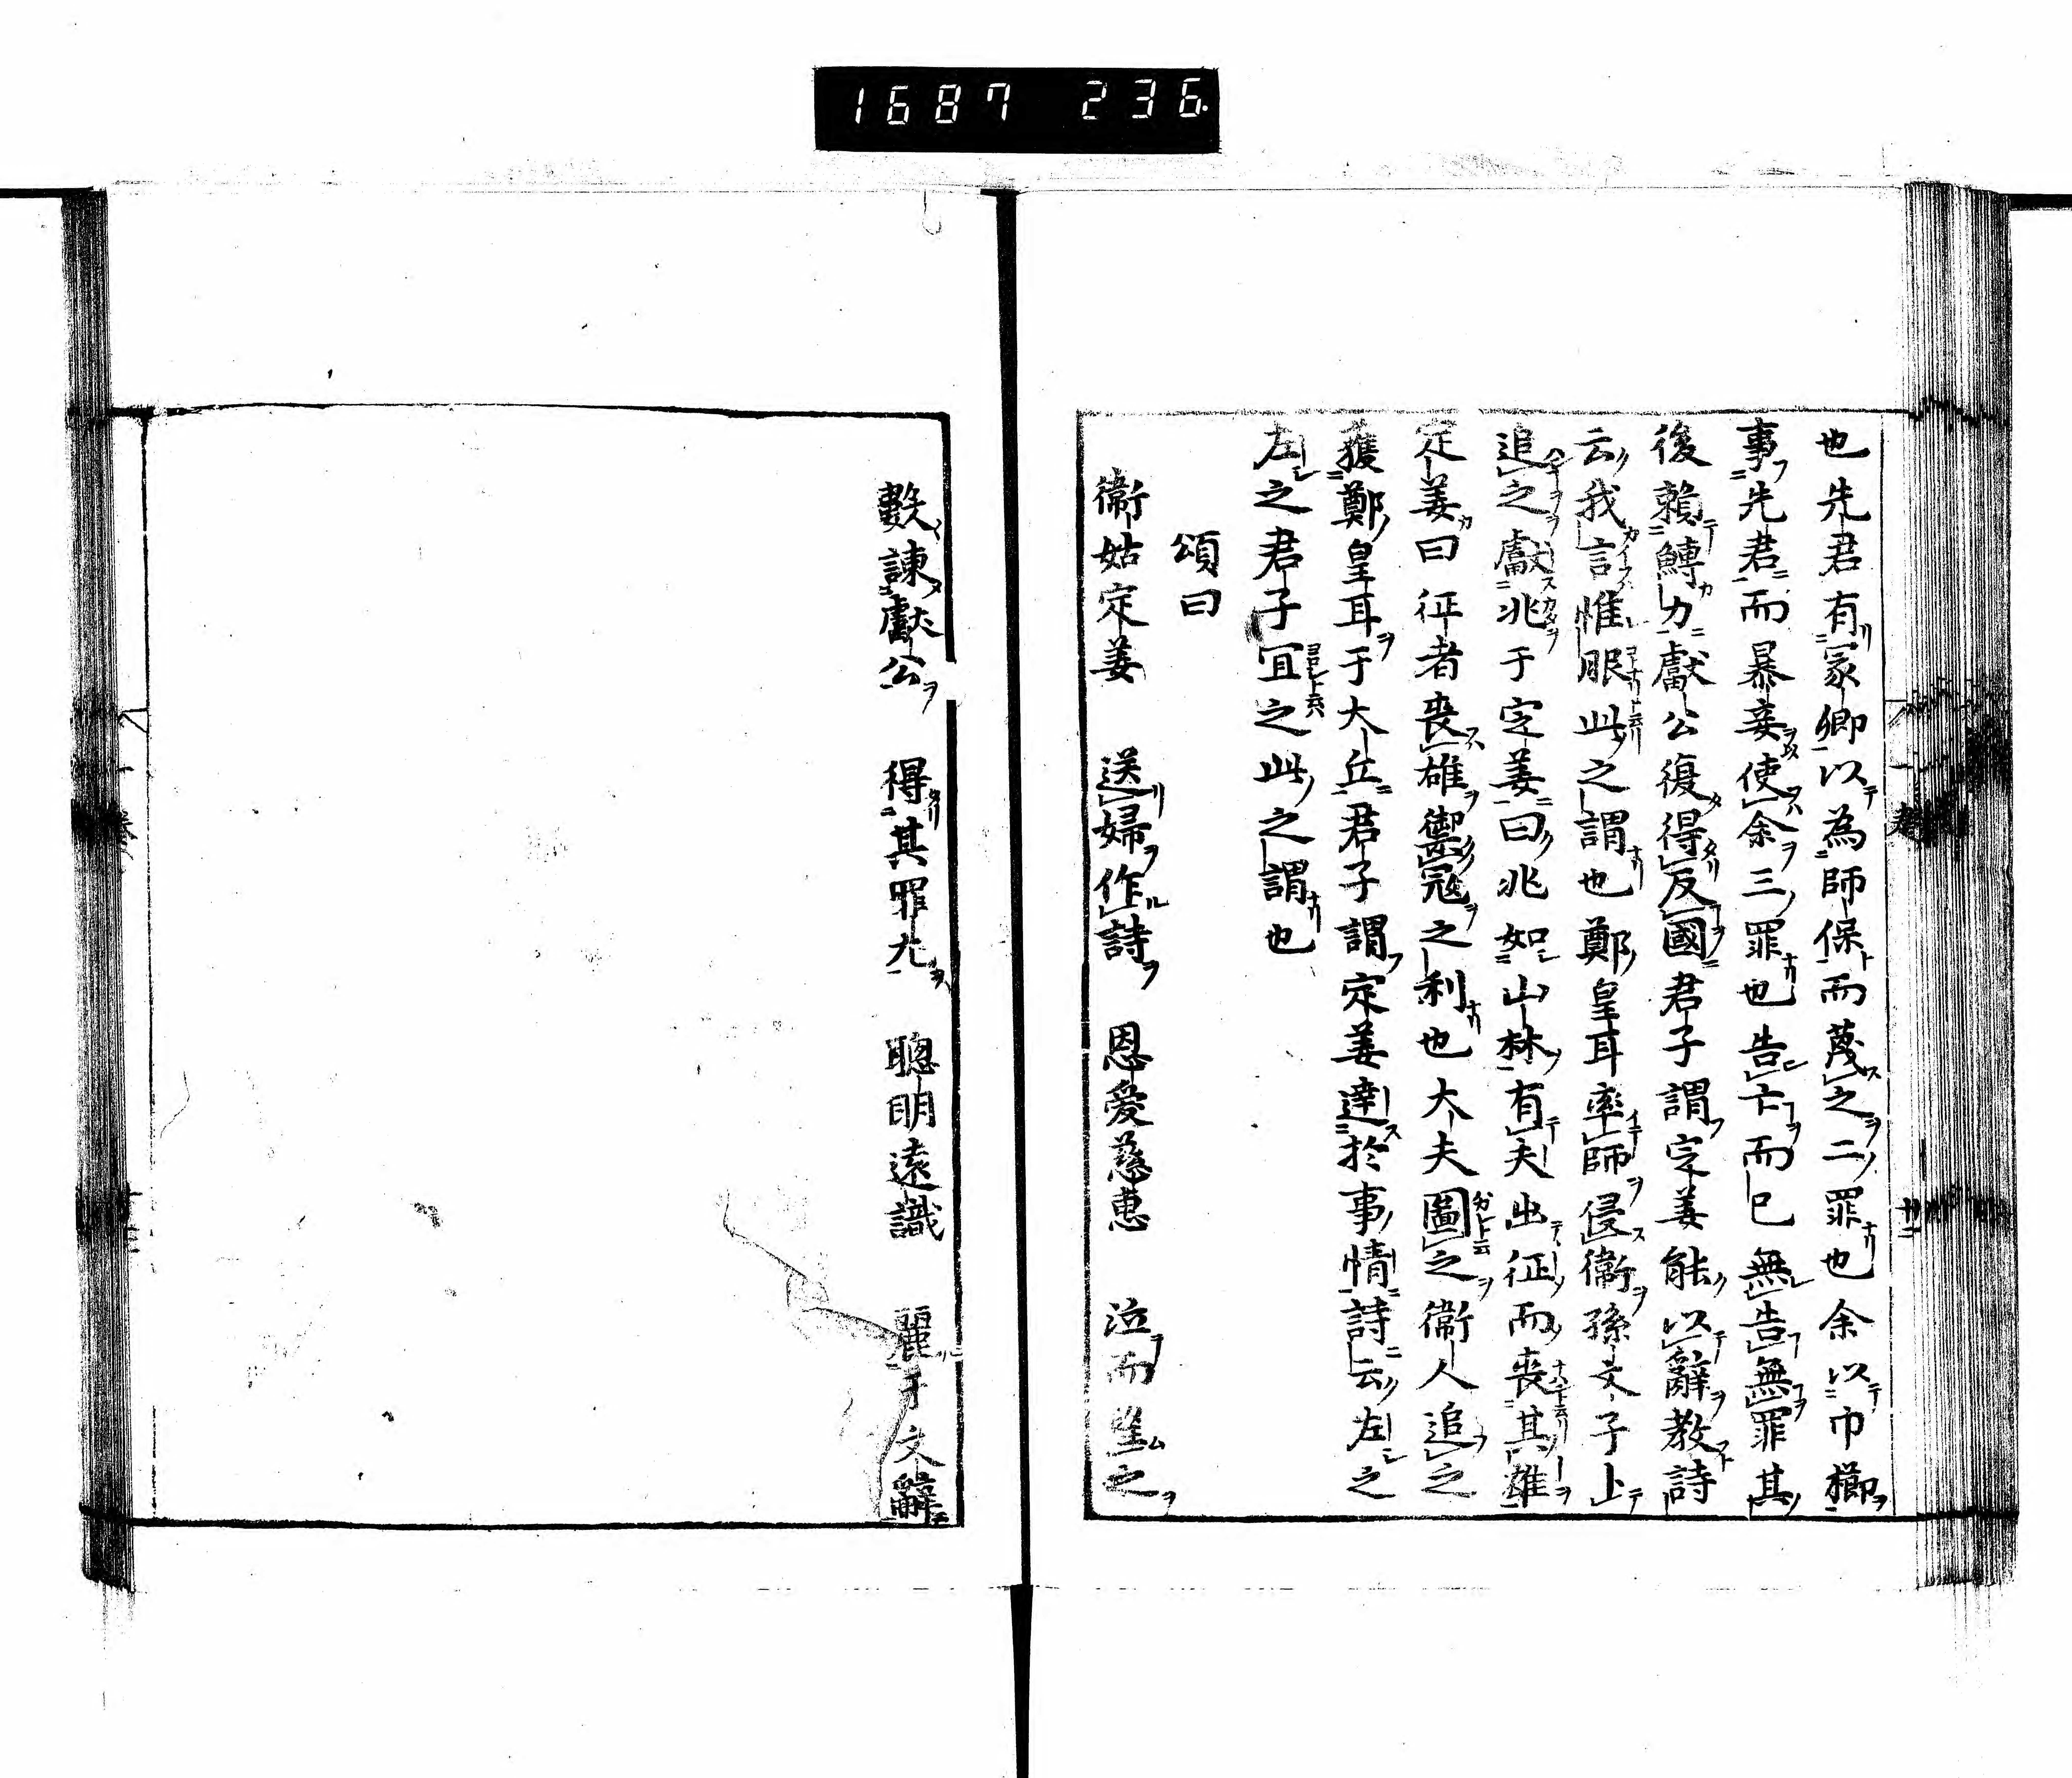 1687 236
也先君有冢卿以為師保而蔑之二罪也余以巾櫛
事先君而暴妾使余三罪也告亡而已無告無罪其
後賴鱄力獻公復得反國君子謂定姜能以辭教詩
云我言惟服此之謂也鄭皇耳率師侵衞孫文子卜
追之獻兆于定姜曰兆如山林有夫出征而喪其雄
定姜曰征者喪雄禦寇之利也大夫圖之衞人追之
獲鄭皇耳于犬丘君子謂定姜達於事情詩云左之
左之君子宜之此之謂也
頌曰
衞姑定姜 送婦作詩 恩愛慈恵 泣而望之
數諫獻公 得其罪尤 聰明遠識 麗于文辭